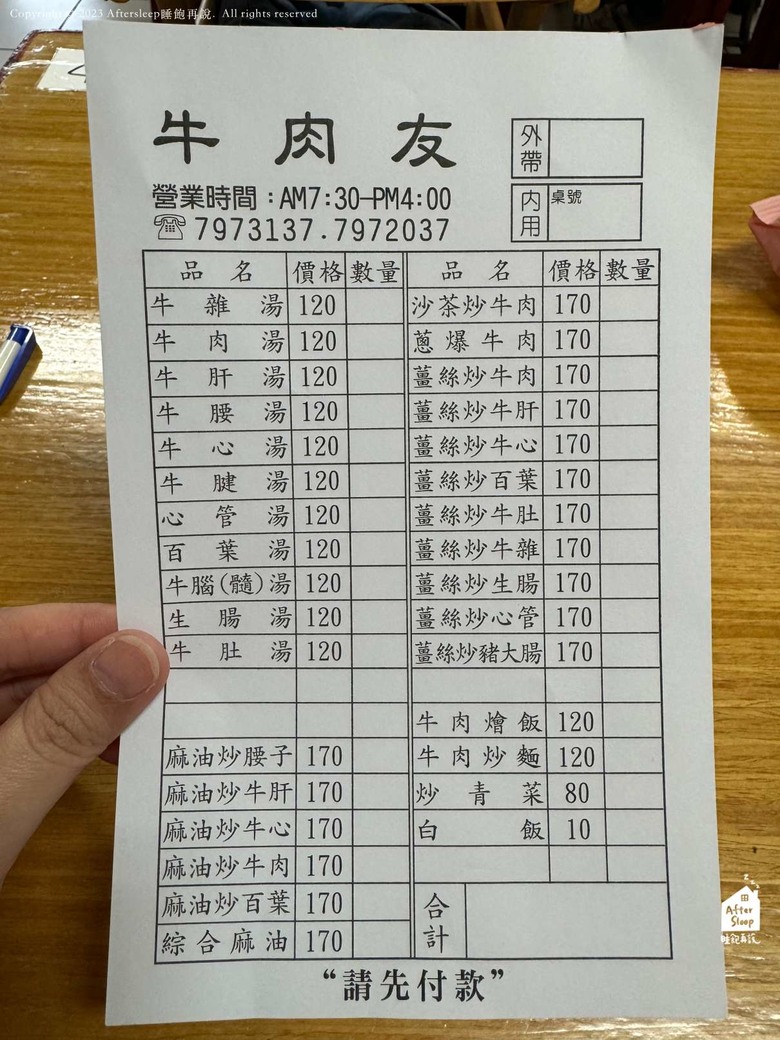 Copyright © 2023 Aftersleep睡飽再說. All rights reserved
牛肉友
外帶
營業時間：AM7:30-PM4:00
內用 桌號
☏7973137.7972037
品名 價格 數量 品名 價格 數量
牛雜湯 120 沙茶炒牛肉 170
牛肉湯 120 蔥爆牛肉 170
牛肝湯 120 薑絲炒牛肉 170
牛腰湯 120 薑絲炒牛肝 170
牛心湯 120 薑絲炒牛心 170
牛腱湯 120 薑絲炒百葉 170
心管湯 120 薑絲炒牛肚 170
百葉湯 120 薑絲炒牛雜 170
牛腦(髓)湯 120 薑絲炒生腸 170
生腸湯 120 薑絲炒心管 170
牛肚湯 120 薑絲炒豬大腸 170
牛肉燴飯 120
麻油炒腰子 170 牛肉炒麵 120
麻油炒牛肝 170 炒青菜 80
麻油炒牛心 170 白飯 10
麻油炒牛肉 170
麻油炒百葉 170 合計
綜合麻油 170
“請先付款”
After
Sleep
睡飽再說